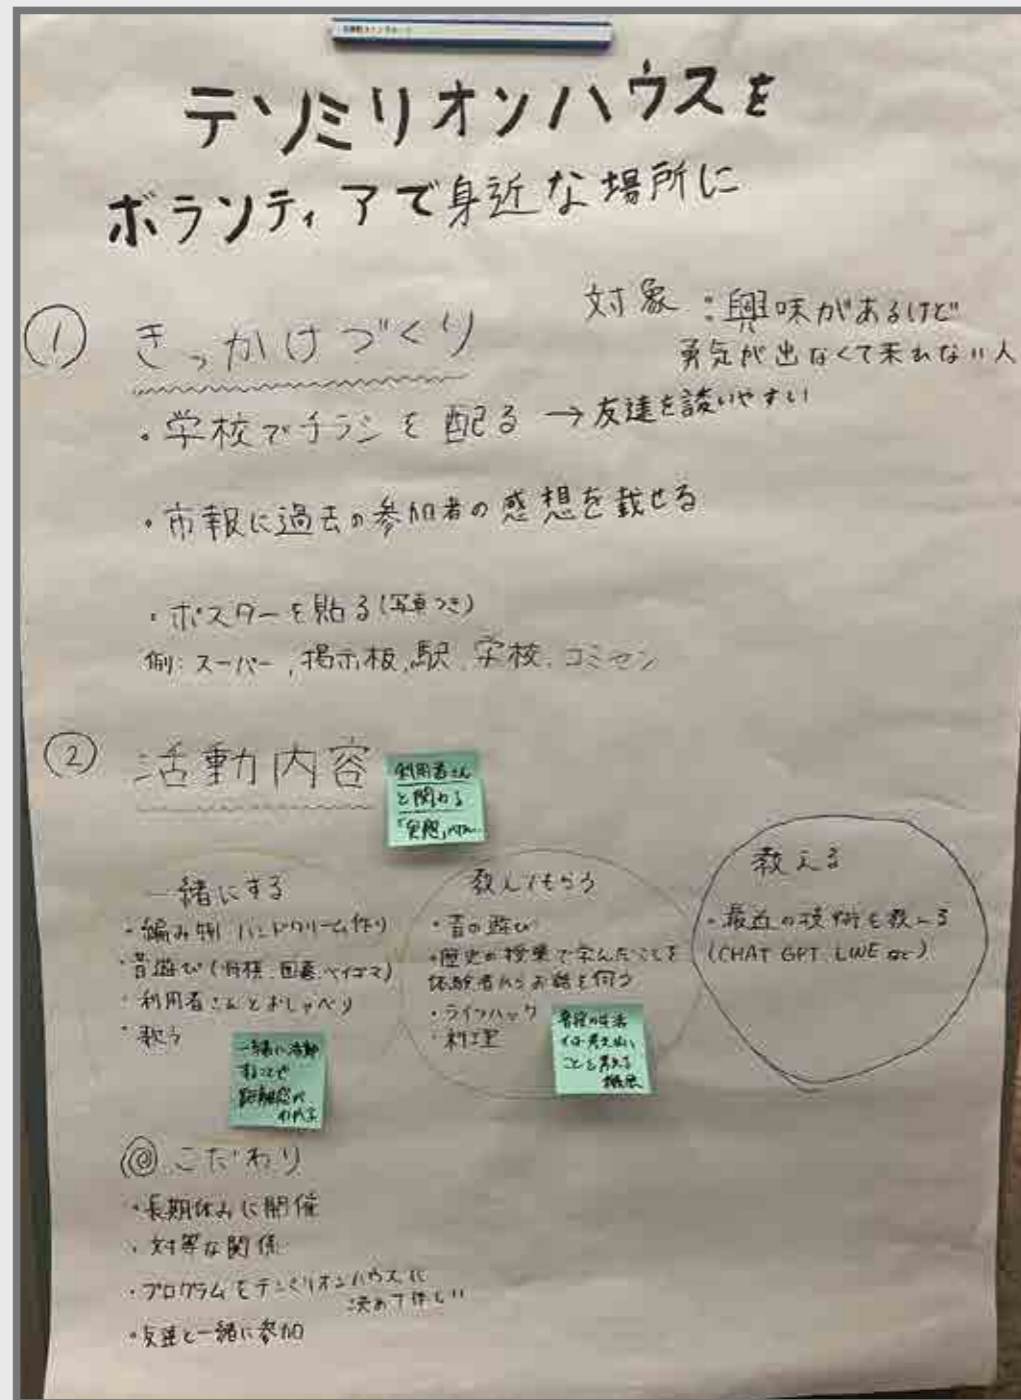 テンミリオンハウスを
ボランティアで身近な場所に
対象：興味があるけど
勇気が出なくて来れない人
① きっかけづくり
・学校でチラシを配る → 友達を誘いやすい
・市報に過去の参加者の感想を載せる
・ポスターを貼る(写真つき)
例：スーパー, 掲示板, 駅, 学校, コミセン
② 活動内容
利用者さん
と関わる
一緒にする
・編み物, ハンドクリーム作り
・昔遊び(将棋, 囲碁, ベイゴマ)
・利用者さんとおしゃべり
・歌う
一緒に活動
することで
距離感が
教えてもらう
・昔の遊び
・歴史の授業で学んだことを
体験者からお話を伺う
・ライフハック
・料理
普段の生活
ことを考える
機会
教える
・最近の技術を教える
(CHAT GPT, LINE など)
◎こだわり
・長期休みに開催
・対等な関係
・プログラムをテンミリオンハウスに
決めて欲しい
・友達と一緒に参加